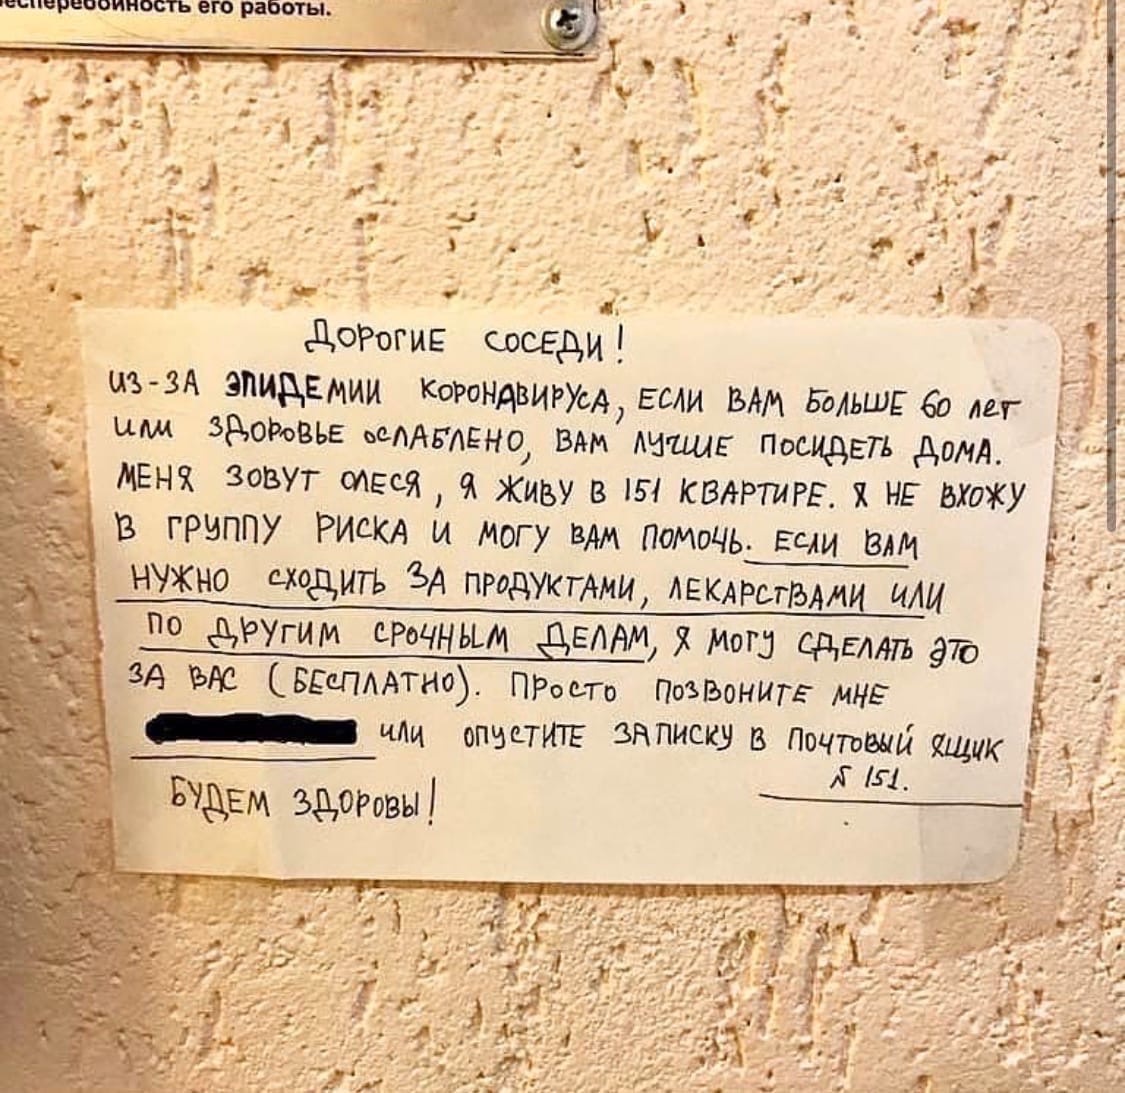 его работы.
ДОРОГИЕ СОСЕДИ!
ИЗ-ЗА ЭПИДЕМИИ КОРОНАВИРУСА, ЕСЛИ ВАМ БОЛЬШЕ 60 ЛЕТ
ИЛИ ЗДОРОВЬЕ ОСЛАБЛЕНО, ВАМ ЛУЧШЕ ПОСИДЕТЬ ДОМА.
МЕНЯ ЗОВУТ ОЛЕСЯ, Я ЖИВУ В 151 КВАРТИРЕ. Я НЕ ВХОЖУ
В ГРУППУ РИСКА И МОГУ ВАМ ПОМОЧЬ. ЕСЛИ ВАМ
НУЖНО СХОДИТЬ ЗА ПРОДУКТАМИ, ЛЕКАРСТВАМИ ИЛИ
ПО ДРУГИМ СРОЧНЫМ ДЕЛАМ, Я МОГУ СДЕЛАТЬ ЭТО
ЗА ВАС (БЕСПЛАТНО). ПРОСТО ПОЗВОНИТЕ МНЕ
ИЛИ ОПУСТИТЕ ЗАПИСКУ В ПОЧТОВЫЙ ЯЩИК
№ 151.
БУДЕМ ЗДОРОВЫ!